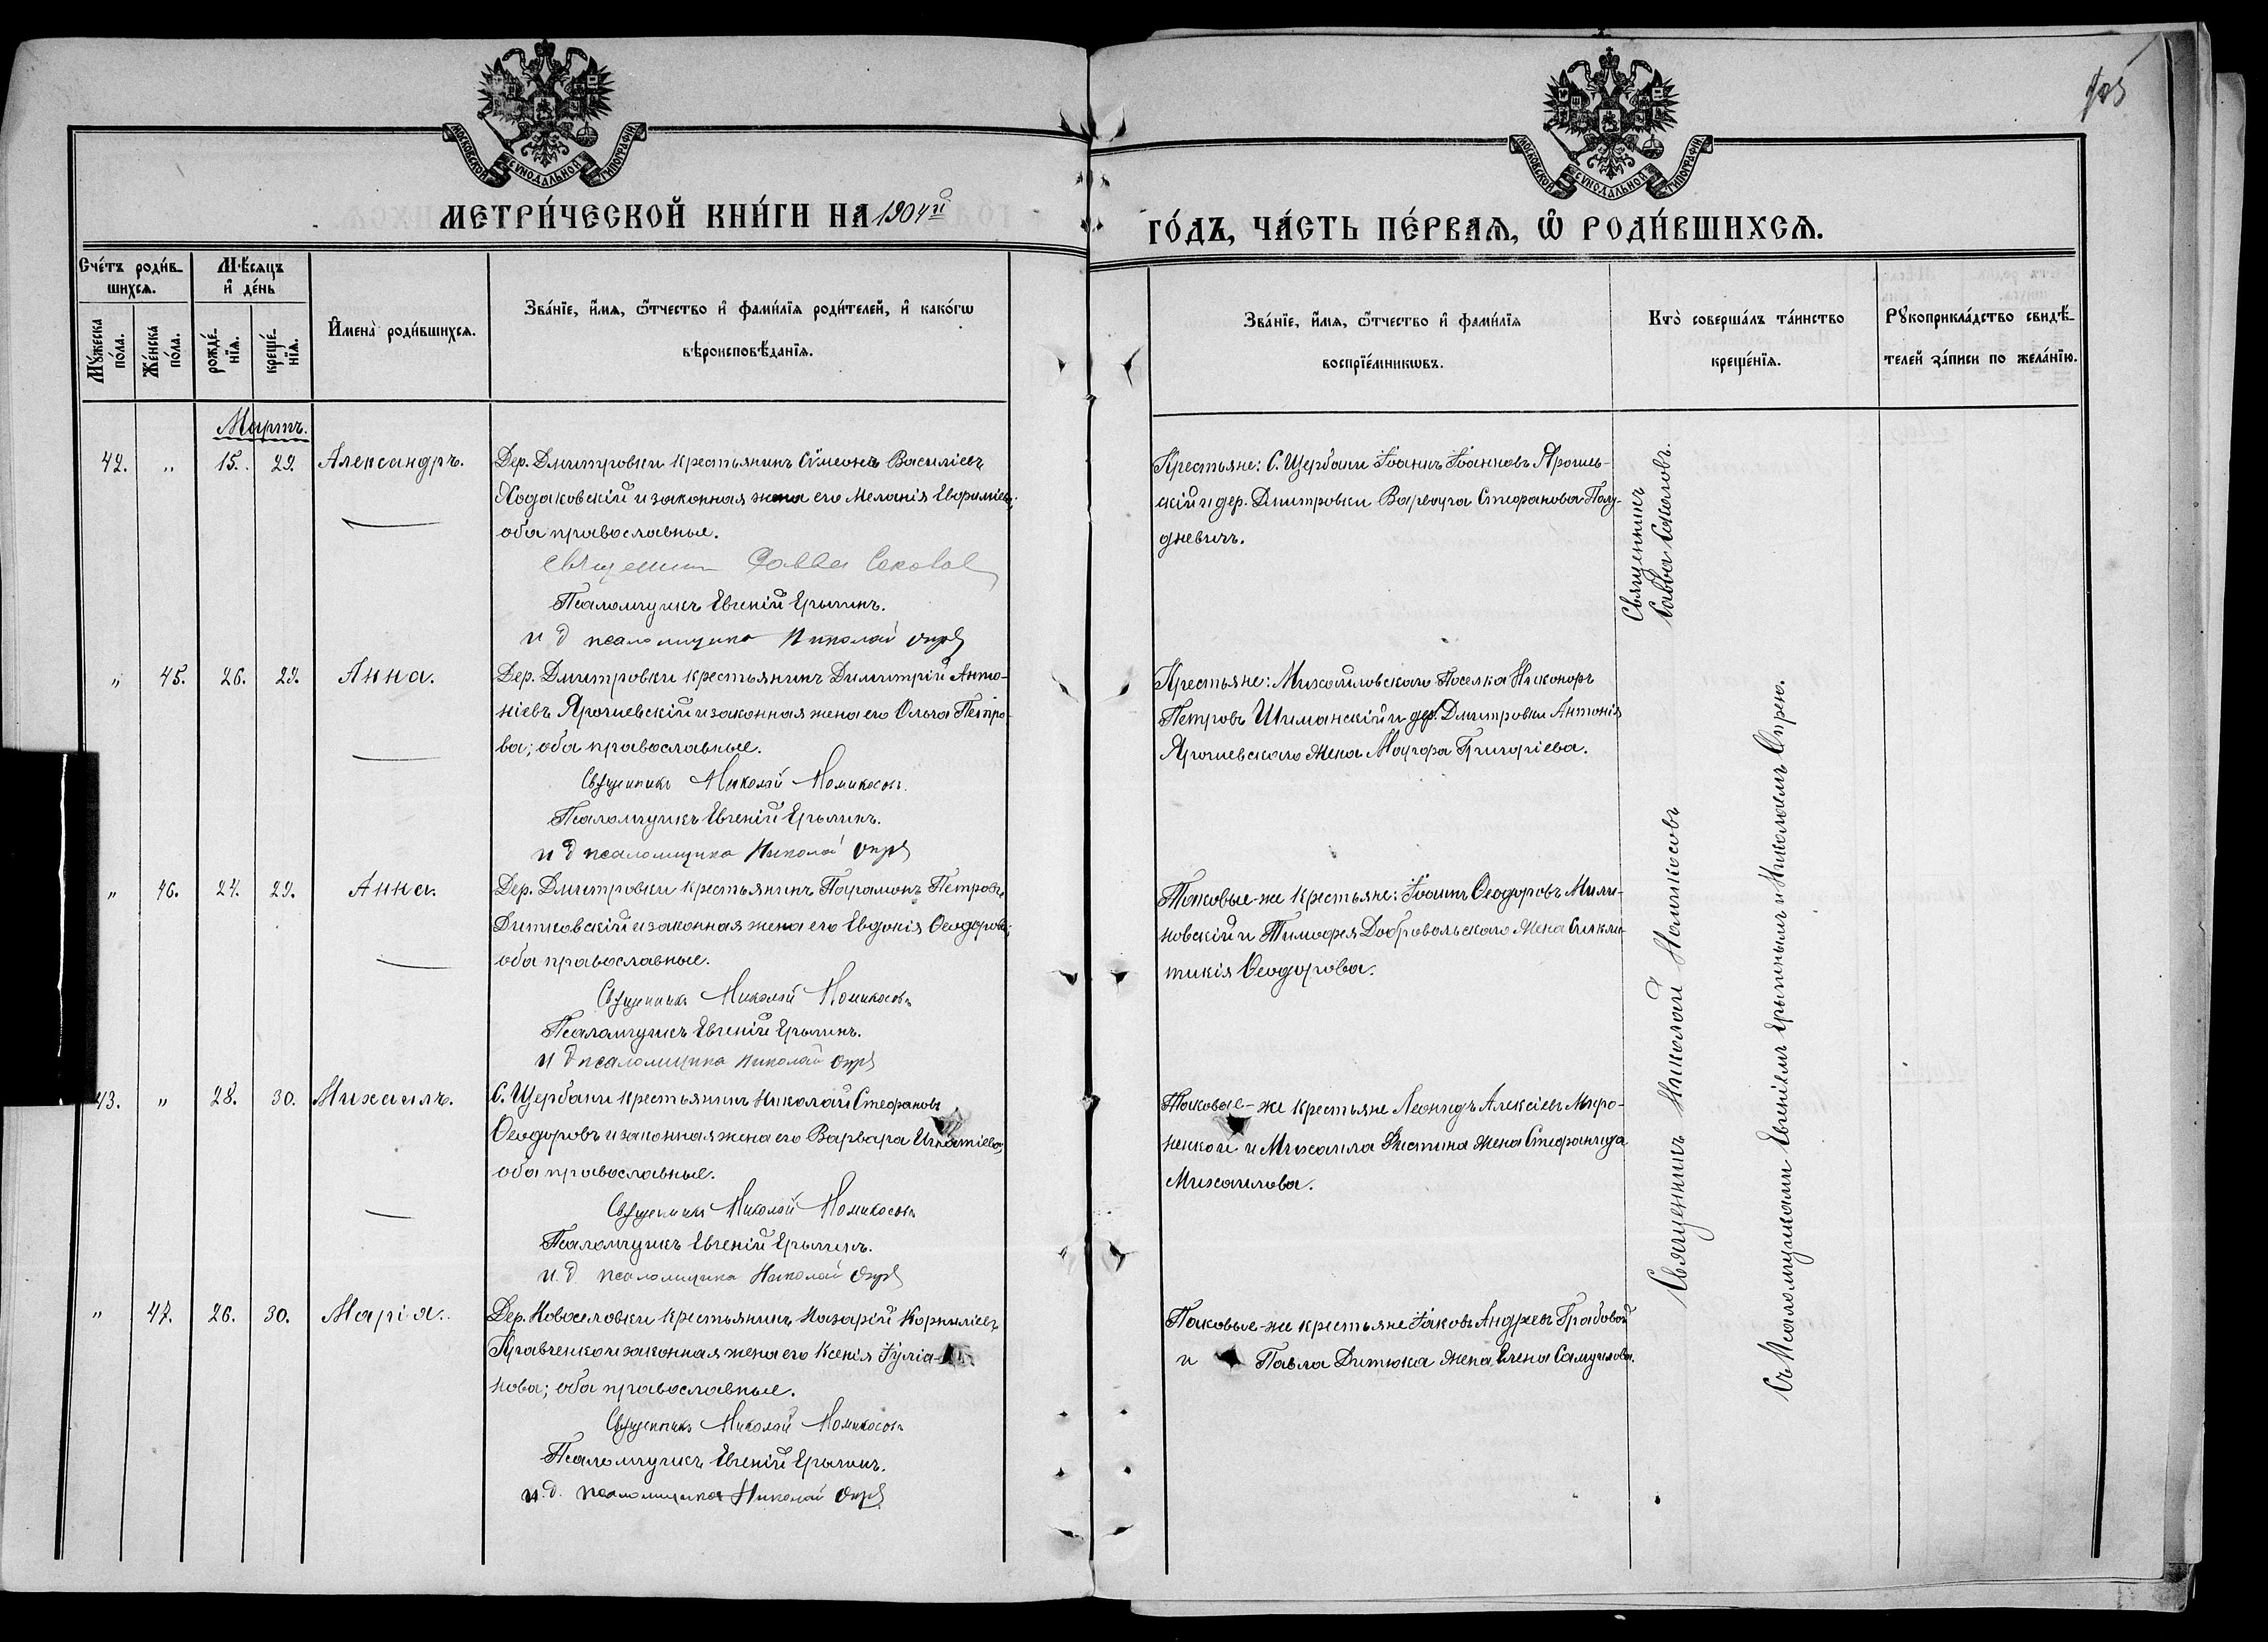 105
МОСКОВСКОЙ СѴНОДАЛЬНОЙ ТИПОГРАФІИ
МОСКОВСКОЙ СѴНОДАЛЬНОЙ ТИПОГРАФІИ
МЕТРИ́ЧЕСКОЙ КНИ́ГИ НА 1904й
ГО́ДЪ, ЧА́СТЬ ПЕ́РВАѦ, Ѡ҆ РОДИ́ВШИХСѦ.
Сче́тъ роди́в-
шихсѧ.
Мꙋ́жеска по́ла.
Же́нска по́ла.
Мѣ́сѧцъ
и҆ де́нь
рожде́-
нїѧ.
креще́-
нїѧ.
И҆мена̀ роди́вшихсѧ.
Зва́нїе, и҆́мѧ, ѻ҆́тчество и҆ фами́лїѧ роди́телей, и҆ како́гѡ
вѣроисповѣ́данїѧ.
Зва́нїе, и҆́мѧ, ѻ҆́тчество и҆ фами́лїѧ
воспрїе́мникѡвъ.
Кто̀ соверша́лъ та́инство
креще́нїѧ.
Рꙋкоприкла́дство свидѣ́-
телей за́писи по жела́нїю.
Мартъ.
42. " 15. 29. Александръ.
Дер. Дмитровки крестьянинъ Сѵмеонъ Василіевъ
Ходаковскій и законная жена его Меланія Евфиміева;
оба православные.
Священник Савва Соколов
Псаломщикъ Евгеній Ерыгинъ.
и д псаломщика Николай
Крестьяне: С. Щербани Іоаннъ Іоанновъ Ярошев-
скій и дер. Дмитровки Варвара Стефанова Полу-
дневичъ.
Священникъ
Савва Соколовъ.
" 45. 26. 29. Анна.
Дер. Дмитровки крестьянинъ Димитрій Анто-
ніевъ Ярошевскій и законная жена его Ольга Петро-
ва; оба православные.
Священникъ Николай
Псаломщикъ Евгеній Ерыгинъ.
и д псаломщика Николай
Крестьяне: Михайловскаго поселка Никоноръ
Петровъ Шиманскій и дер. Дмитровки Антонія
Ярошевскаго жена Марфа Григоріева.
" 46. 24. 29. Анна.
Дер. Дмитровки крестьянинъ Парамонъ Петровъ
Дитковскій и законная жена его Евдокія Ѳеодорова;
оба православные.
Священникъ Николай
Псаломщикъ Евгеній Ерыгинъ.
и д псаломщика Николай
Таковые-же крестьяне: Іоаннъ Ѳеодоровъ Мали-
новскій и Тимофея Добровольскаго жена Синкли-
тикія Ѳеодорова.
43. " 28. 30. Михаилъ.
С. Щербани крестьянинъ Николай Стефановъ
Ѳеодоровъ и законная жена его Варвара Игнатіева;
оба православные.
Священникъ Николай
Псаломщикъ Евгеній Ерыгинъ.
и. д. псаломщика Николай
Таковые-же крестьяне Леонидъ Алексіевъ Миро-
ненко и и Михаила жена Стефанида
Михаилова.
" 47. 26. 30. Марія.
Дер. Новоселовки крестьянинъ Назарій Корниліевъ
Кравченко и законная жена его Ксенія Іуліа-
нова; оба православные.
Священникъ Николай
Псаломщикъ Евгеній Ерыгинъ.
и. д. псаломщика Николай
Таковые-же крестьяне Іаковъ Андреевъ Грабовой
и Павла Дитюка жена Елена Самуилова.
Священникъ Николай
Съ Псаломщиками Евгеніемъ Ерыгинымъ и Николаемъ